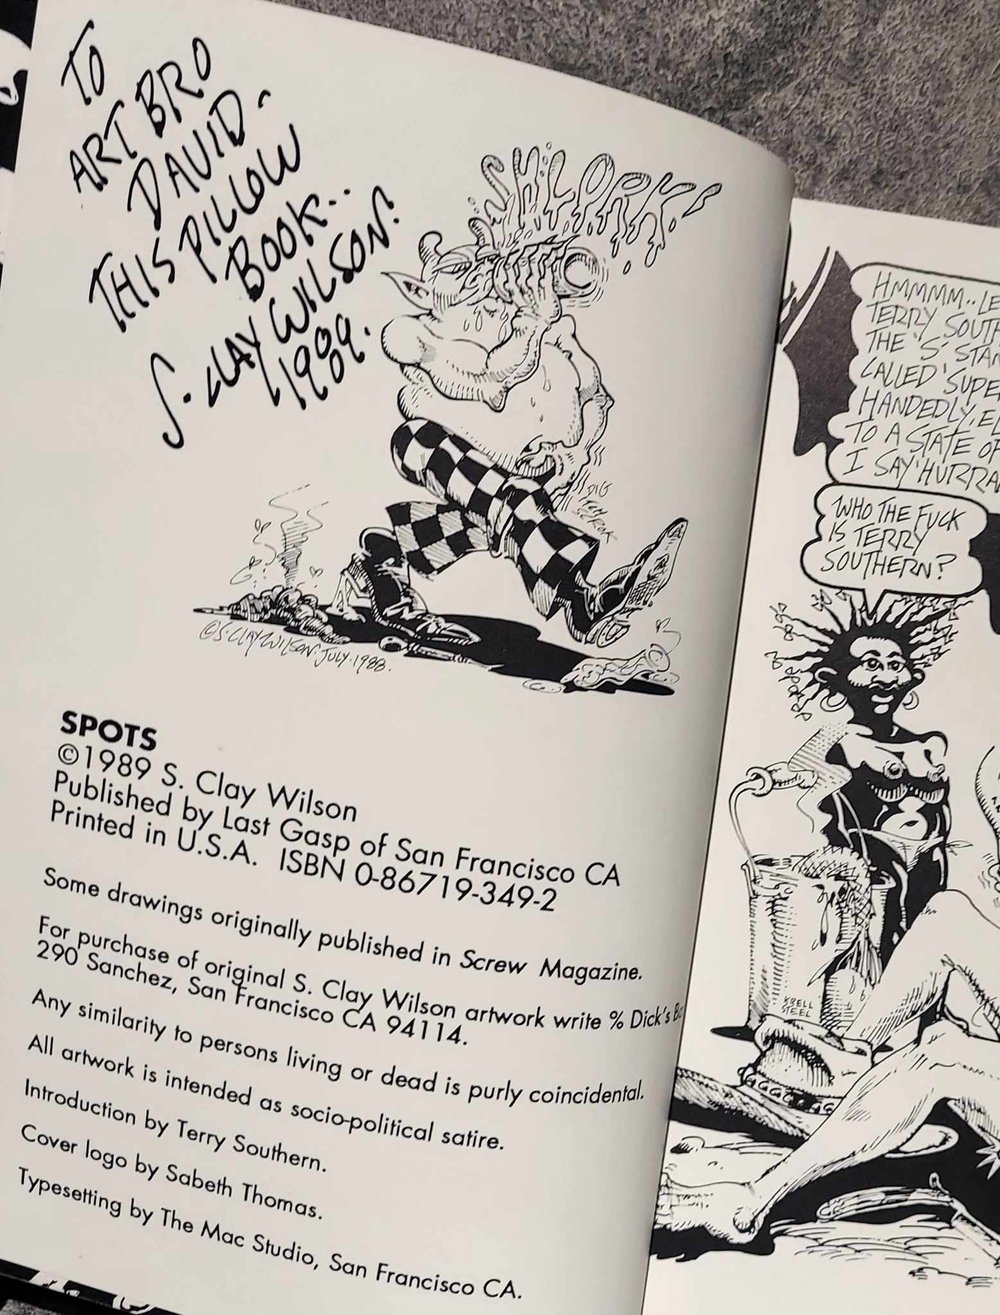 TO
ART BRO
DAVID.
THIS PILLOW
BOOK..
S. CLAY WILSON.
1989.
SHLORK!
©S. CLAY WILSON JULY. 1988.
SPOTS
©1989 S. Clay Wilson
Published by Last Gasp of San Francisco CA
Printed in U.S.A. ISBN 0-86719-349-2
Some drawings originally published in Screw Magazine.
For purchase of original S. Clay Wilson artwork write % Dick's
290 Sanchez, San Francisco CA 94114.
Any similarity to persons living or dead is purly coincidental.
All artwork is intended as socio-political satire.
Introduction by Terry Southern.
Cover logo by Sabeth Thomas.
Typesetting by The Mac Studio, San Francisco CA.
HMMMM..
TERRY
THE 'S'
CALLED
HANDEDLY,
TO A STATE OF
I SAY
WHO THE FUCK
IS TERRY
SOUTHERN?
KRELL
STEEL